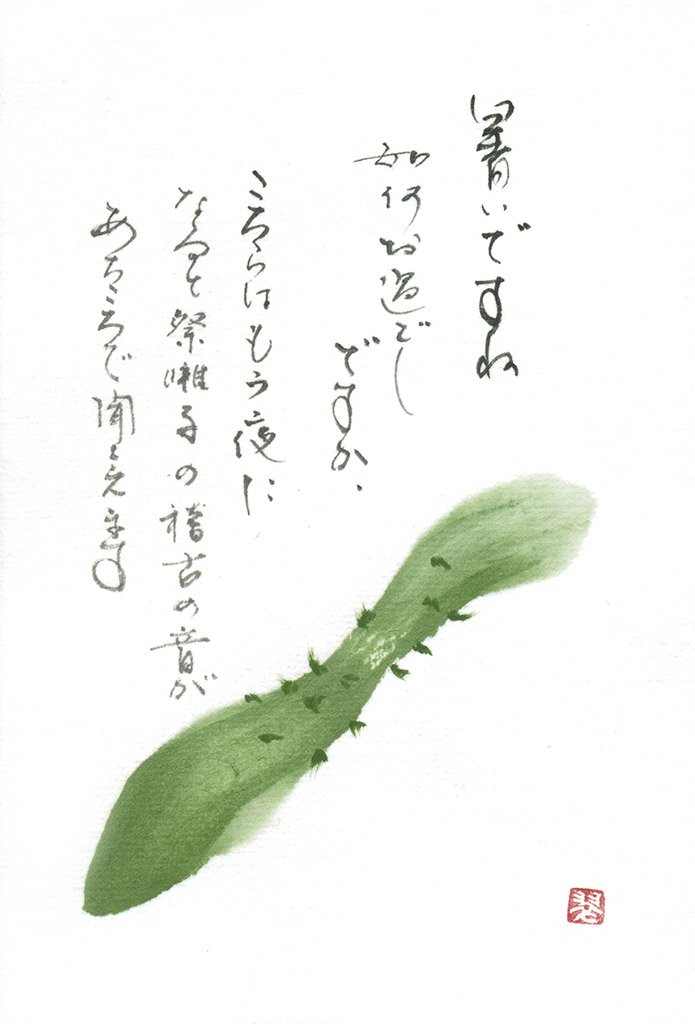 暑いですね
如何お過ごし
ですか、
こちらはもう夜に
なると祭囃子の稽古の音が
あちこちで聞こえます